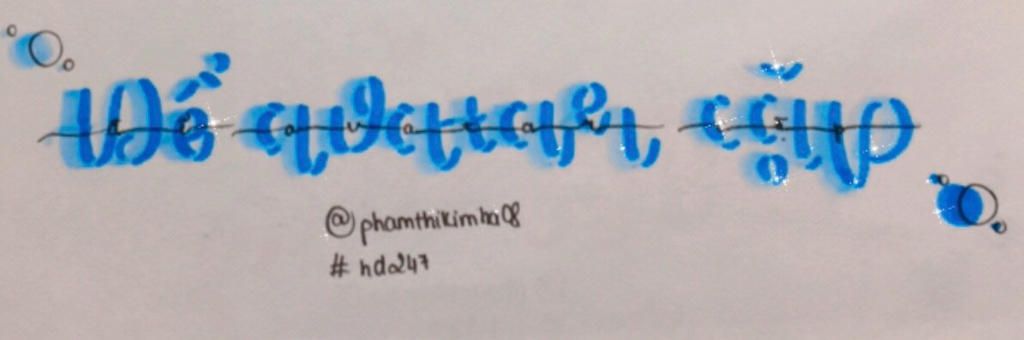 Để avatar cặp
@phamthikimha08
# hda247